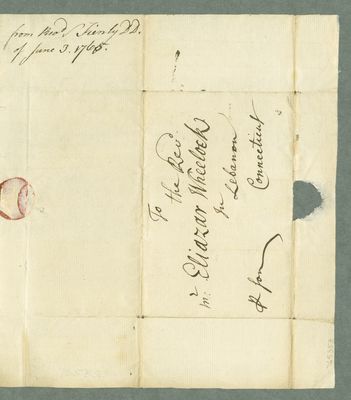 from Revd
of June 3. 1765.
To the Revd
mr Eliazar Wheelock
In Lebanon
Connecticut